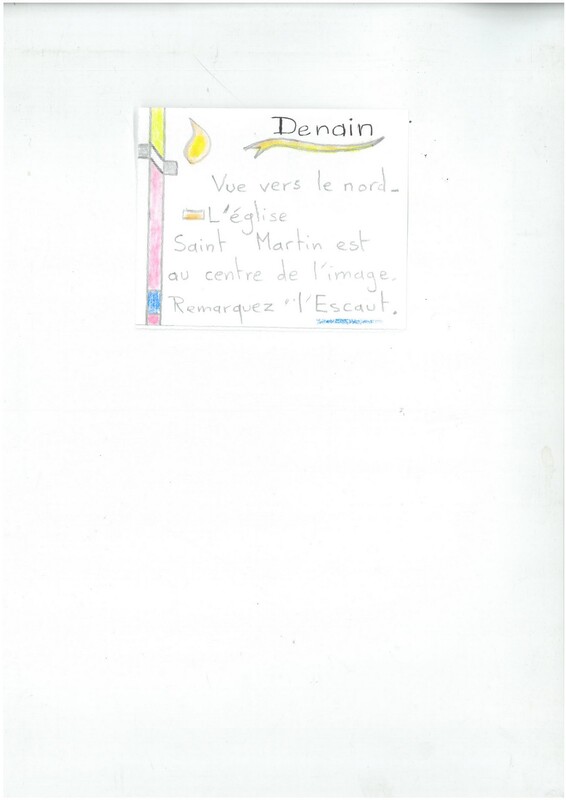 Denain
Vue vers le nord-
L'église
Saint Martin est
au centre de l'image.
Remarquez l'Escaut.